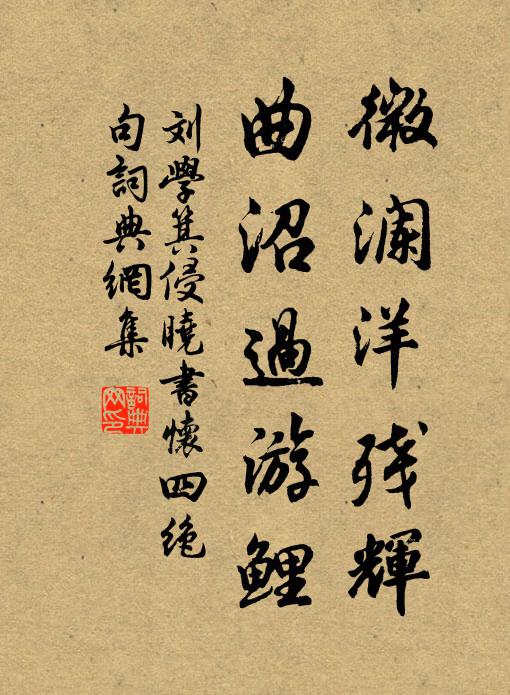 微澜洋残輝
曲沼過游鯉
刘學箕侵曉書懷四絶
句詞典網集
詞典
网印